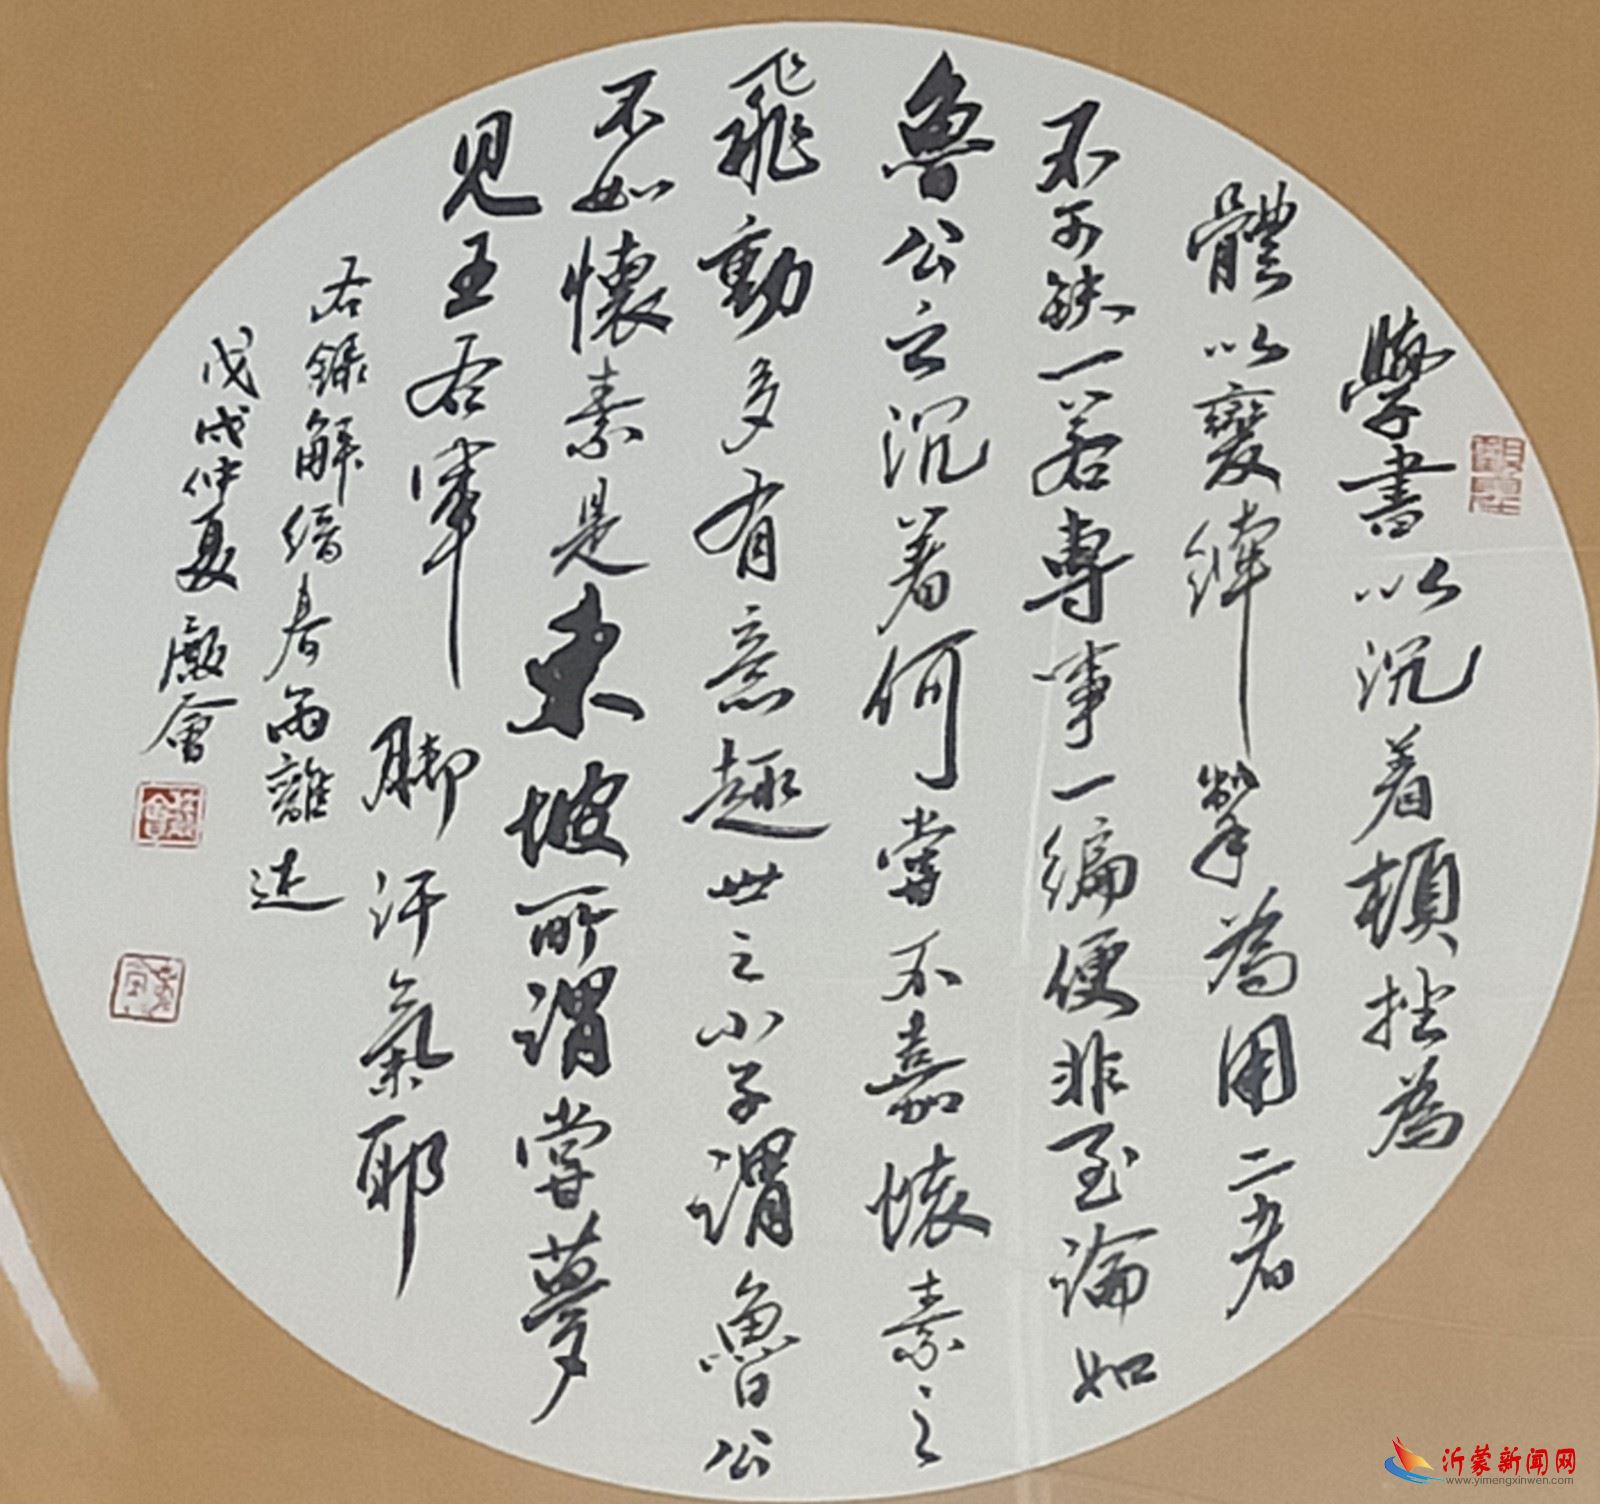 學書以沉着頓挫為
體以變縴掣為用二者
不可缺一若專事一編便非至論如
魯公之沉着何嘗不嘉懷素之
飛動多有意趣世之小子謂魯公
不如懷素是東坡所謂嘗夢
見王右軍脚汗氣耶
右錄解縉春雨雜述
戊戌仲夏殿會
沂蒙新闻网
www.yimengxinwen.com